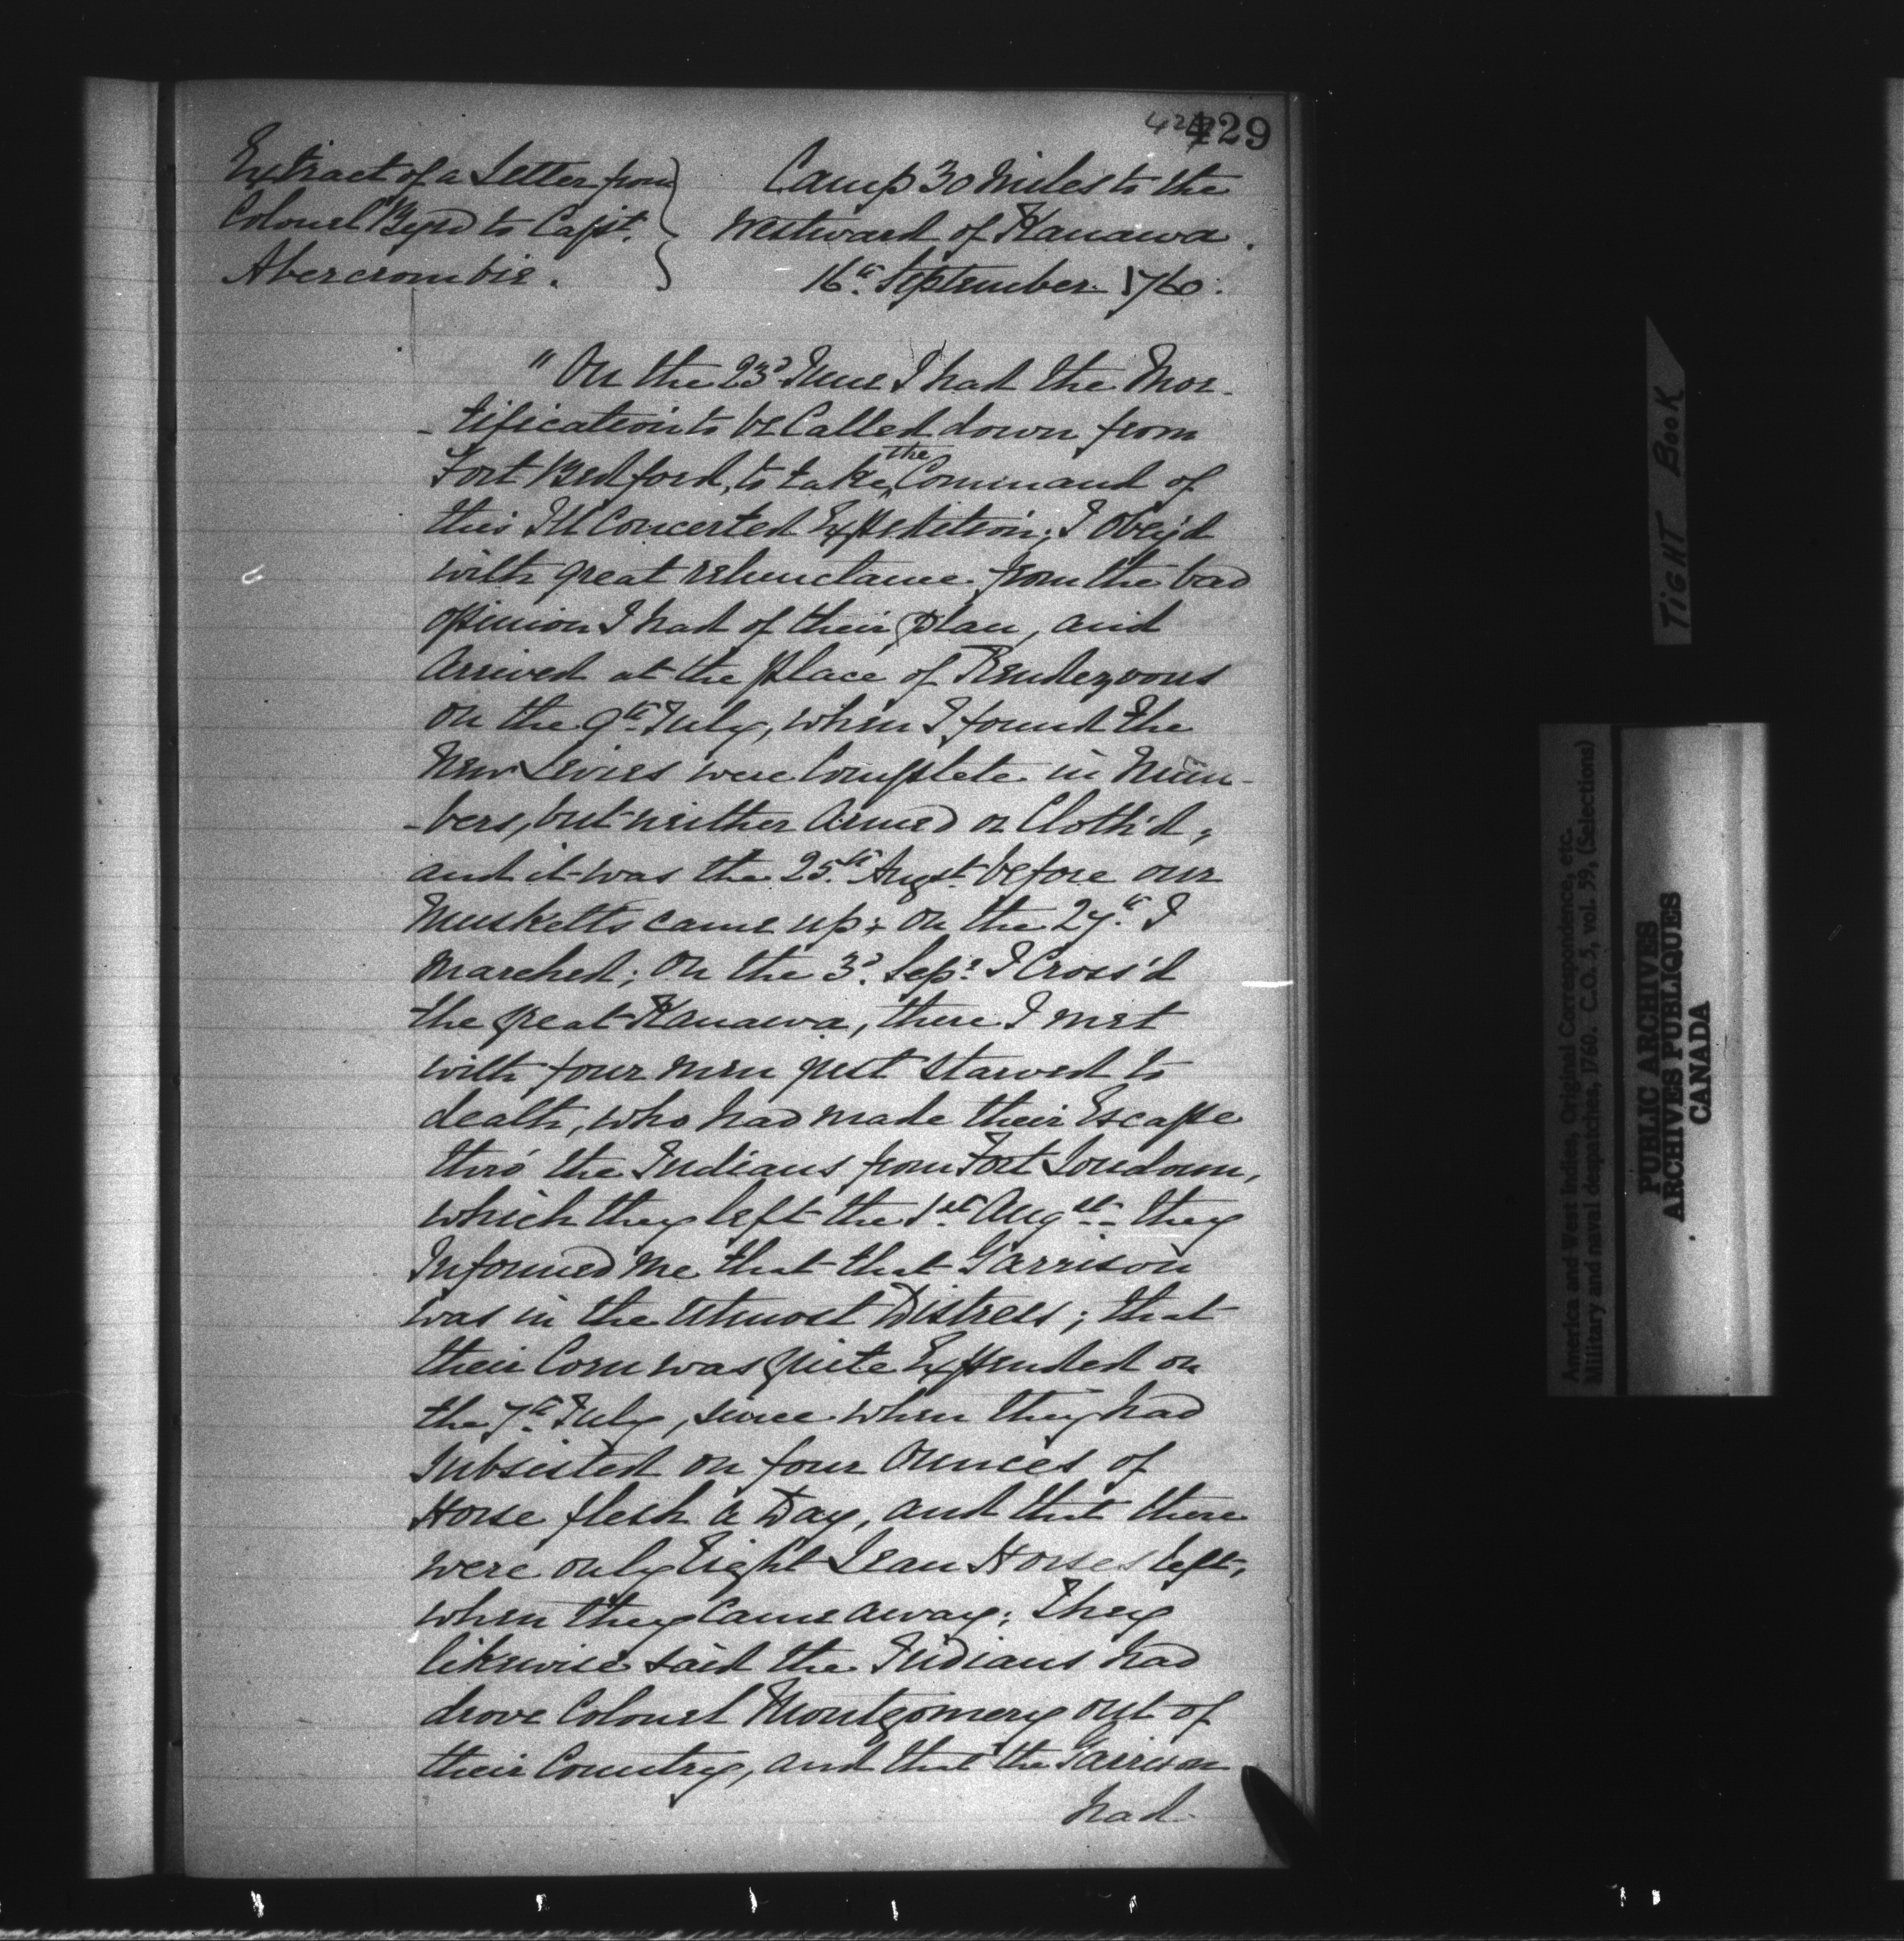 429
Extract of a Letter from
Colonel Byrd to Capt.
Abercrombie.
Camp 30 Miles to the
Westward of Kanawa.
16th. September 1760.
"On the 23d June I had the Mor-
-tification to be Called down from
Fort Bedford, to take the Command of
this Ill Concerted Expedition; I Obey'd
with great relunctance from the bad
opinion I had of their Plan, and
Arrived at the place of Rendezvous
on the 9th July, when I found the
New Levies were Complete in Num-
-bers, but neither Armed or Cloth'd,
and it was the 25th Augst. before our
Musketts came up; On the 27th. I
Marched; On the 3d. Sepr. I Cross'd
the great Kanawa, there I met
with four men just starved to
death, who had made their Escape
thro' the Indians from Fort Loudoun,
which they left the 1st Augst. they
Informed me that that Garrison
was in the utmost Distress; that
their Corn was quite Expended on
the 7th July, since when they had
subsisted on four Ounces of
Horse flesh a Day, and that there
were only Eight Lean Horses left,
when they Came away; They
likewise said the Indians had
drove Colonel Montgomery out of
their Country, and that the Garrison
had
TIGHT BOOK
America and West Indies, Original Correspondence, etc.
Military and naval despatches, 1760. C.O. 5, vol. 59, (Selections)
PUBLIC ARCHIVES
ARCHIVES PUBLIQUES
CANADA